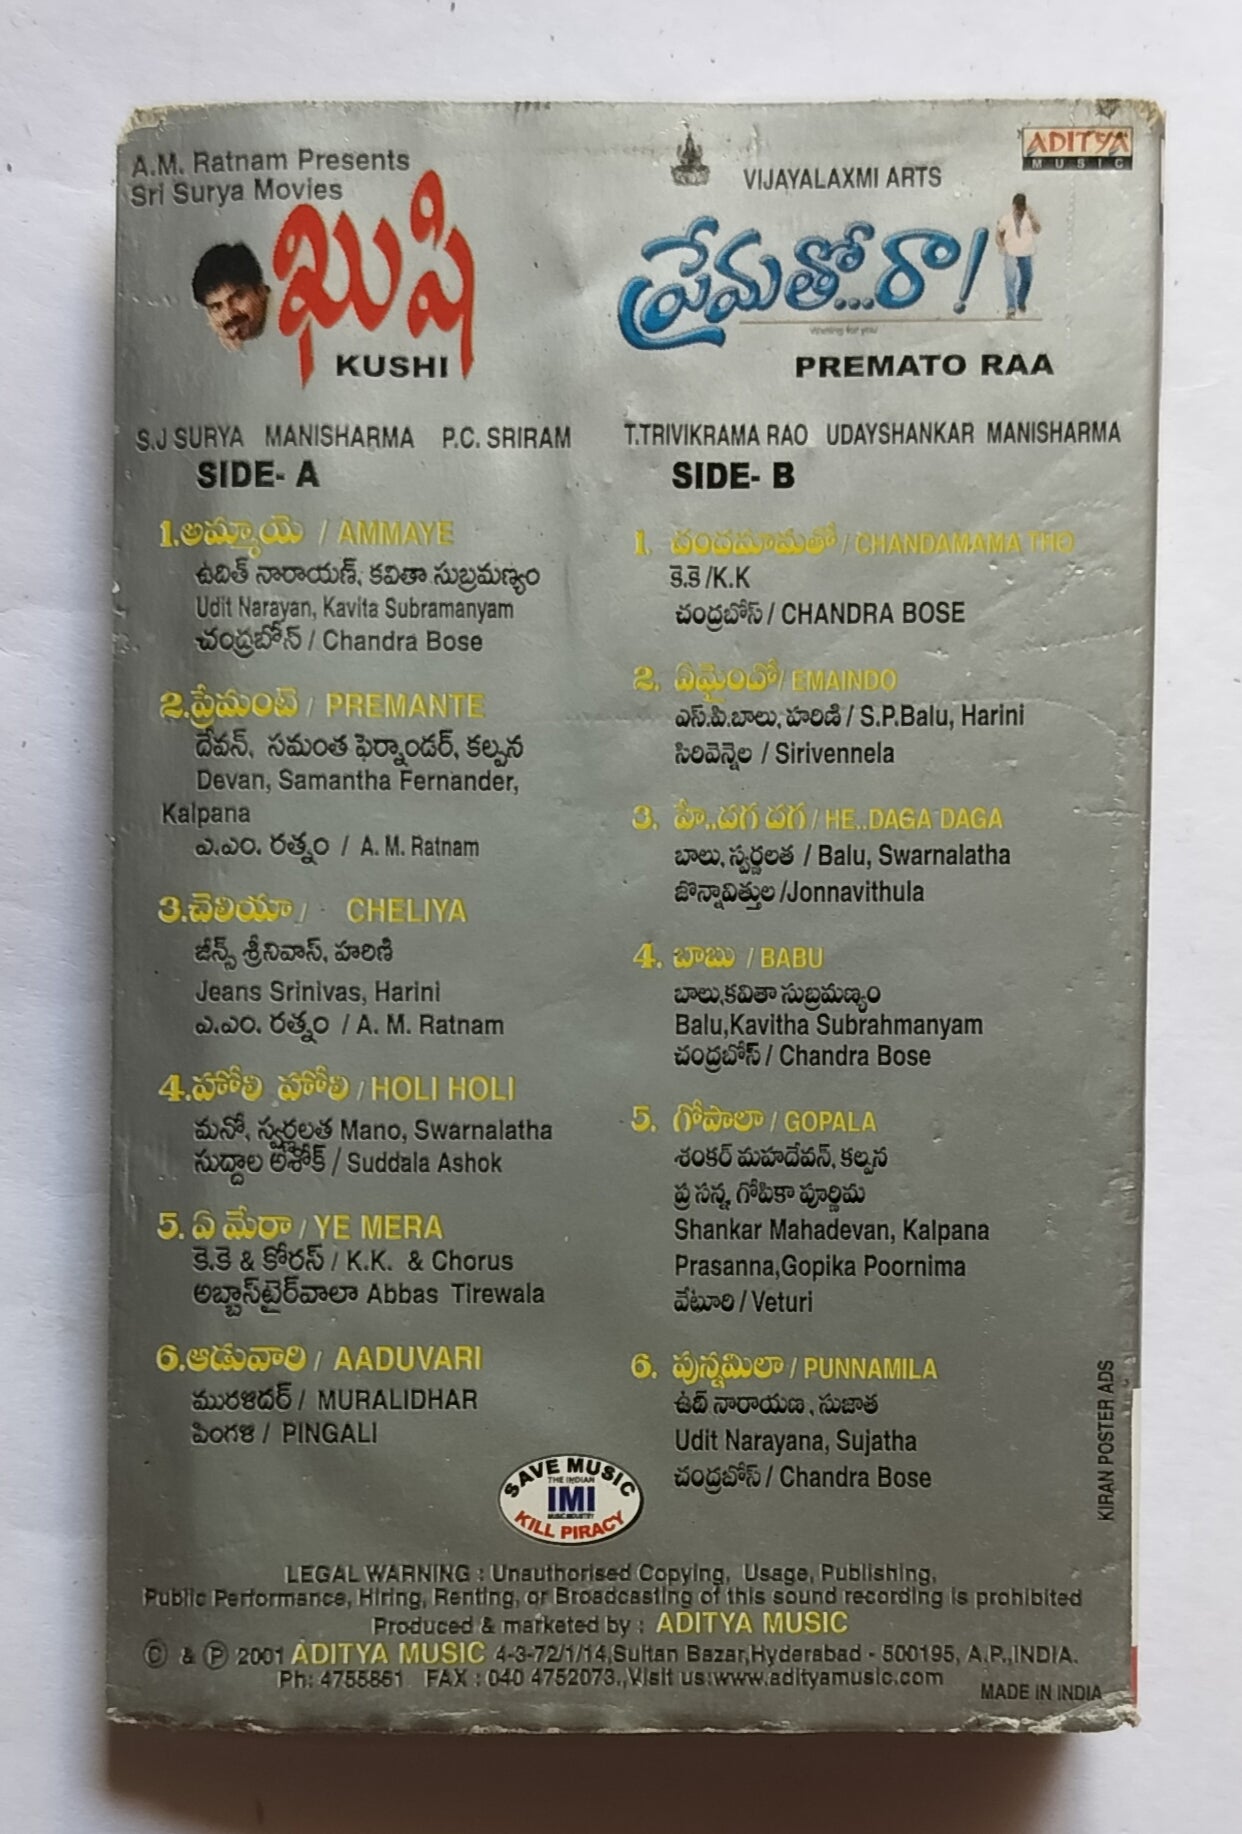 A.M. Ratnam Presents
Sri Surya Movies
ఖుషి
KUSHI
S.J SURYA MANISHARMA P.C. SRIRAM
SIDE- A
1.అమ్మాయె / AMMAYE
ఉదిత్ నారాయణ్, కవితా సుబ్రమణ్యం
Udit Narayan, Kavita Subramanyam
చంద్రబోస్ / Chandra Bose
2.ప్రేమంటె / PREMANTE
దేవన్, సమంత ఫెర్నాండర్, కల్పన
Devan, Samantha Fernander,
Kalpana
ఎ.ఎం. రత్నం / A. M. Ratnam
3.చెలియా / CHELIYA
జీన్స్ శ్రీనివాస్, హరిణి
Jeans Srinivas, Harini
ఎ.ఎం. రత్నం / A. M. Ratnam
4.హోలి హోలి / HOLI HOLI
మనో, స్వర్ణలత Mano, Swarnalatha
సుద్దాల అశోక్ / Suddala Ashok
5. ఏ మేరా / YE MERA
కె.కె & కోరస్ / K.K. & Chorus
అబ్బాస్‌టైర్‌వాలా Abbas Tirewala
6.ఆడువారి / AADUVARI
మురళిదర్ / MURALIDHAR
పింగళి / PINGALI
ADITYA
MUSIC
VIJAYALAXMI ARTS
ప్రేమతో...రా!
Waiting for you
PREMATO RAA
T.TRIVIKRAMA RAO UDAYSHANKAR MANISHARMA
SIDE- B
1. చందమామతో / CHANDAMAMA THO
కె.కె /K.K
చంద్రబోస్ / CHANDRA BOSE
2. ఏమైందో / EMAINDO
ఎస్.పి.బాలు, హరిణి / S.P.Balu, Harini
సిరివెన్నెల / Sirivennela
3. హే..దగ దగ / HE..DAGA DAGA
బాలు, స్వర్ణలత / Balu, Swarnalatha
జొన్నావిత్తుల /Jonnavithula
4. బాబు / BABU
బాలు,కవితా సుబ్రమణ్యం
Balu,Kavitha Subrahmanyam
చంద్రబోస్ / Chandra Bose
5. గోపాలా / GOPALA
శంకర్ మహదేవన్, కల్పన
ప్రసన్న, గోపికా పూర్ణిమ
Shankar Mahadevan, Kalpana
Prasanna,Gopika Poornima
వేటూరి / Veturi
6. పున్నమిలా / PUNNAMILA
ఉదిత్ నారాయణ, సుజాత
Udit Narayana, Sujatha
చంద్రబోస్ / Chandra Bose
KIRAN POSTER ADS
SAVE MUSIC
THE INDIAN
IMI
MUSIC INDUSTRY
KILL PIRACY
LEGAL WARNING : Unauthorised Copying, Usage, Publishing,
Public Performance, Hiring, Renting, or Broadcasting of this sound recording is prohibited
Produced & marketed by : ADITYA MUSIC
© & ℗ 2001 ADITYA MUSIC 4-3-72/1/14,Sultan Bazar,Hyderabad - 500195, A.P.,INDIA.
Ph: 4755861 FAX : 040 4752073.,Visit us:www.adityamusic.com
MADE IN INDIA